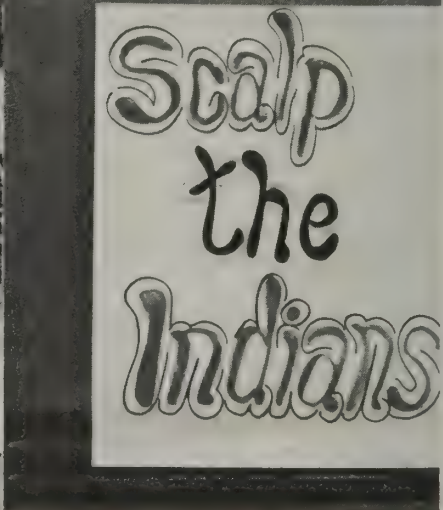 Scalp
the
Indians